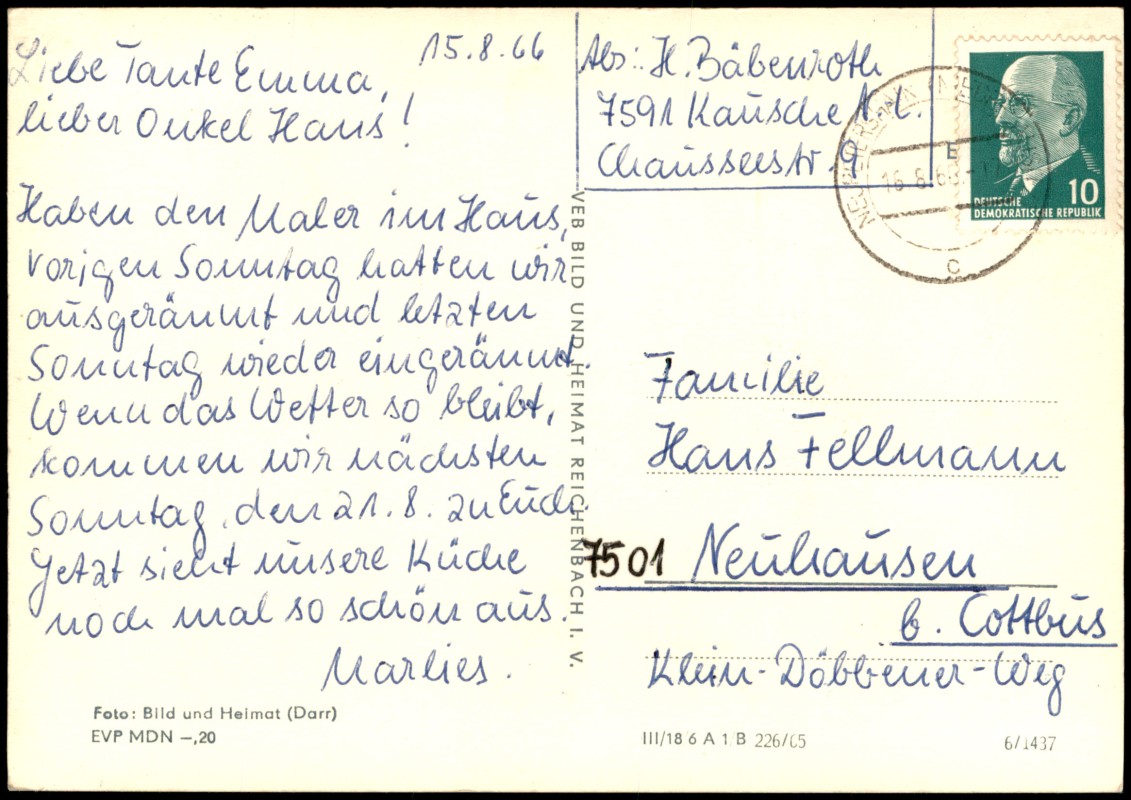 15.8.66
Liebe Tante Emma,
lieber Onkel Hans!
Haben den Maler im Haus,
vorigen Sonntag hatten wir
ausgeräumt und letzten
Sonntag wieder eingeräumt.
Wenn das Wetter so bleibt,
kommen wir nächsten
Sonntag, den 21.8. zu Euch.
Jetzt sieht unsere Küche
noch mal so schön aus.
Marlies.
Foto: Bild und Heimat (Darr)
EVP MDN –,20
VEB BILD UND HEIMAT REICHENBACH I. V.
Abs.: H. Bäbenroth
7591 Kausche N.L.
Chausseestr. 9
16.8.66
E
C
10
DEUTSCHE
DEMOKRATISCHE REPUBLIK
Familie
Hans Fellmann
7501 Neuhausen
b. Cottbus
Klein-Döbbener-Weg
III/18 6 A 1 B 226/65
6/1437